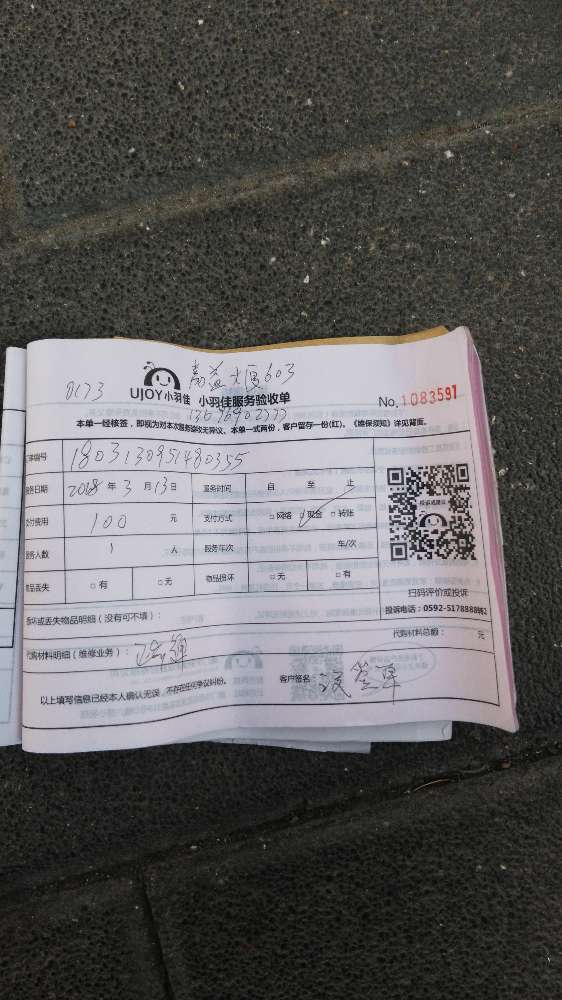 大厦603
0173
UJOY小羽佳 小羽佳服务验收单
No.1083597
本单一经核签，即视为对本次服务验收无异议，本单一式两份，客户留存一份(红)。《维保须知》详见背面。
单编号 1803130951480355
务日期 2018 年 3 月 13 日 服务时间 自 至 止
付费用 100 元 支付方式 □网络 现金 □转账
服务人数 1 人 服务车次 车/次
物品丢失 □有 □无 物品损坏 □无 □有
扫码评价或投诉
投诉电话：0592-5178888
损坏或丢失物品明细（没有可不填）：
代购材料明细（维修业务）： 代购材料总额： 元
以上填写信息已经本人确认无误，不存在任何争议纠纷。 客户签名：